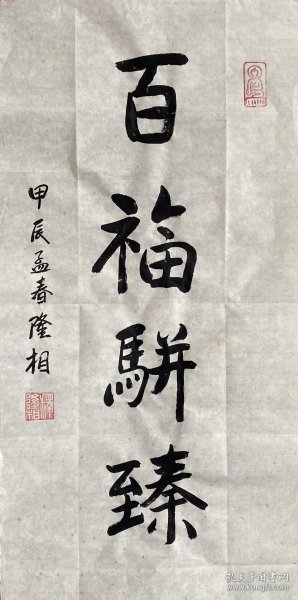 百福駢臻
甲辰孟春隆相
孔夫子旧书网